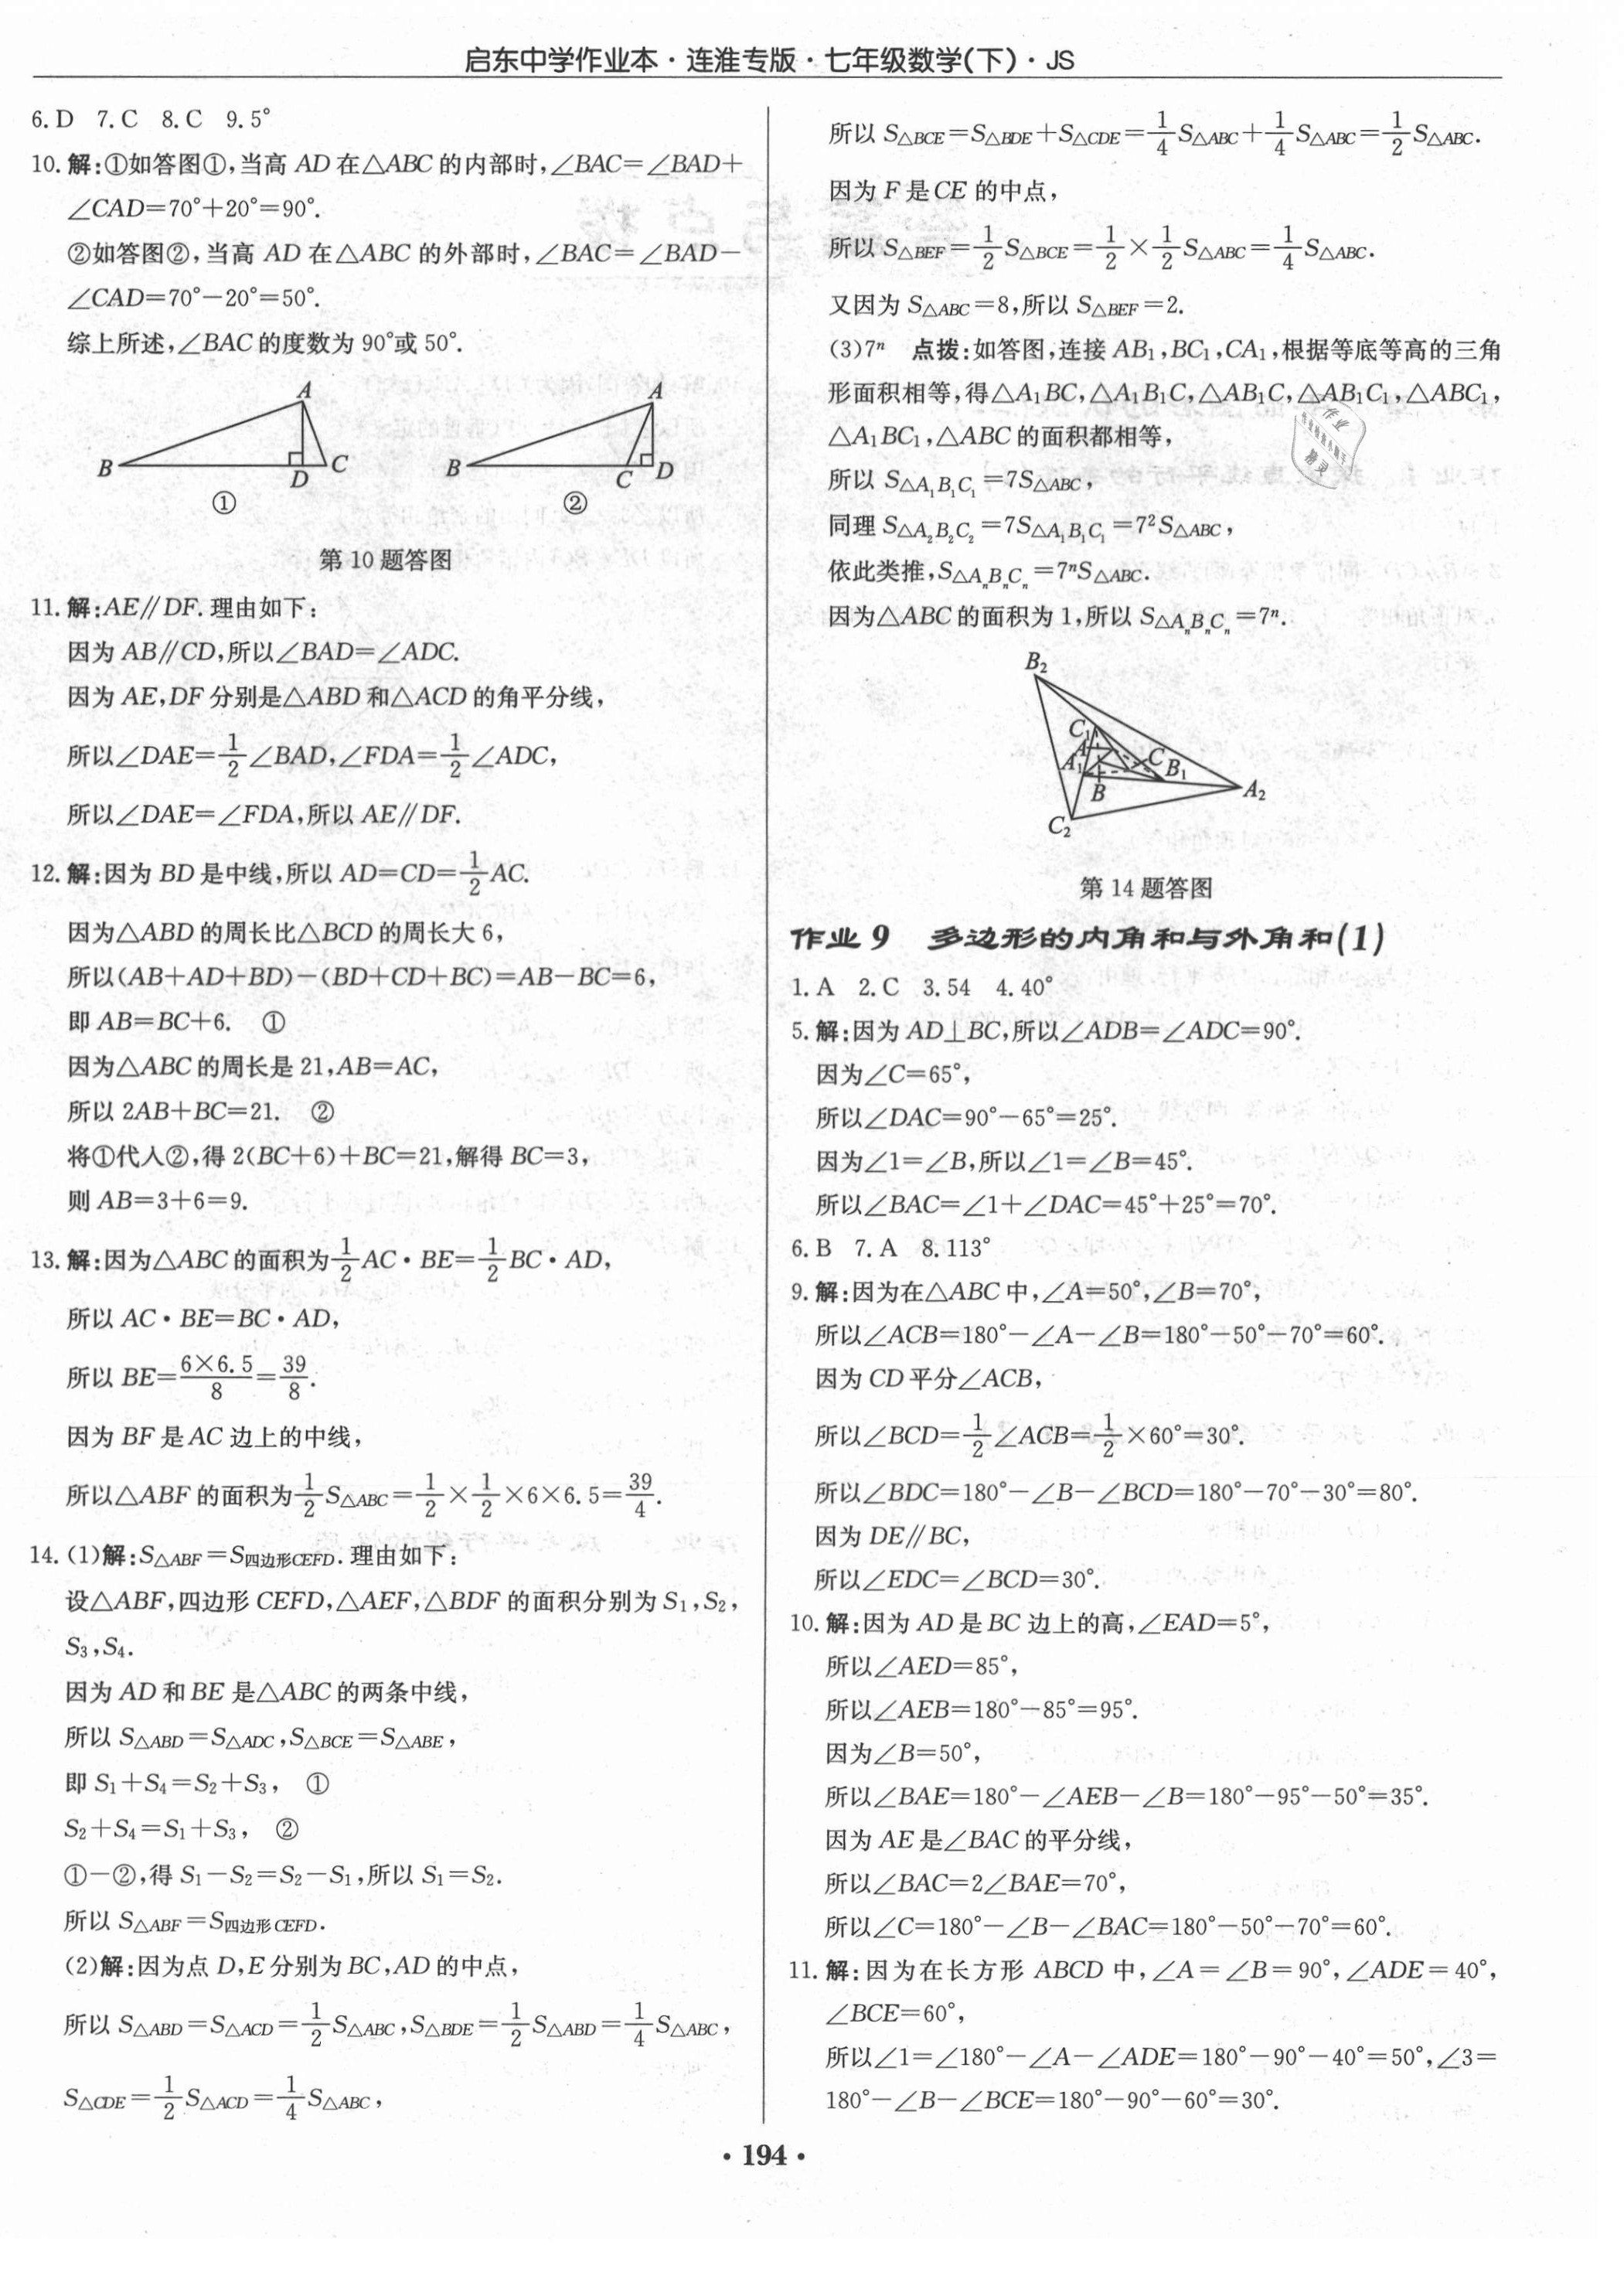 启东中学作业本·连淮专版·七年级数学(下)·JS
6.D 7.C 8.C 9.5°
10.解:①如答图①,当高 AD 在△ABC 的内部时,∠BAC=∠BAD+
∠CAD=70°+20°=90°.
②如答图②,当高 AD 在△ABC 的外部时,∠BAC=∠BAD-
∠CAD=70°-20°=50°.
综上所述,∠BAC 的度数为 90°或 50°.
A
B
D
C
①
A
B
C
D
②
第 10 题答图
11.解:AE∥DF.理由如下:
因为 AB∥CD,所以∠BAD=∠ADC.
因为 AE,DF 分别是△ABD 和△ACD 的角平分线,
所以∠DAE=1/2∠BAD,∠FDA=1/2∠ADC,
所以∠DAE=∠FDA,所以 AE∥DF.
12.解:因为 BD 是中线,所以 AD=CD=1/2AC.
因为△ABD 的周长比△BCD 的周长大 6,
所以(AB+AD+BD)-(BD+CD+BC)=AB-BC=6,
即 AB=BC+6. ①
因为△ABC 的周长是 21,AB=AC,
所以 2AB+BC=21. ②
将①代入②,得 2(BC+6)+BC=21,解得 BC=3,
则 AB=3+6=9.
13.解:因为△ABC 的面积为1/2AC·BE=1/2BC·AD,
所以 AC·BE=BC·AD,
所以 BE=6×6.5/8=39/8.
因为 BF 是 AC 边上的中线,
所以△ABF 的面积为1/2S△ABC=1/2×1/2×6×6.5=39/4.
14.(1)解:S△ABF=S四边形CEFD.理由如下:
设△ABF,四边形 CEFD,△AEF,△BDF 的面积分别为 S₁,S₂,
S₃,S₄.
因为 AD 和 BE 是△ABC 的两条中线,
所以 S△ABD=S△ADC,S△BCE=S△ABE,
即 S₁+S₄=S₂+S₃, ①
S₂+S₄=S₁+S₃, ②
①-②,得 S₁-S₂=S₂-S₁,所以 S₁=S₂.
所以 S△ABF=S四边形CEFD.
(2)解:因为点 D,E 分别为 BC,AD 的中点,
所以 S△ABD=S△ACD=1/2S△ABC,S△BDE=1/2S△ABD=1/4S△ABC,
S△CDE=1/2S△ACD=1/4S△ABC,
所以 S△BCE=S△BDE+S△CDE=1/4S△ABC+1/4S△ABC=1/2S△ABC.
因为 F 是 CE 的中点,
所以 S△BEF=1/2S△BCE=1/2×1/2S△ABC=1/4S△ABC.
又因为 S△ABC=8,所以 S△BEF=2.
(3)7ⁿ 点拨:如答图,连接 AB₁,BC₁,CA₁,根据等底等高的三角
形面积相等,得△A₁BC,△A₁B₁C,△AB₁C,△AB₁C₁,△ABC₁,
△A₁BC₁,△ABC 的面积都相等,
所以 S△A₁B₁C₁=7S△ABC,
同理 S△A₂B₂C₂=7S△A₁B₁C₁=7²S△ABC,
依此类推,S△AₙBₙCₙ=7ⁿS△ABC.
因为△ABC 的面积为 1,所以 S△AₙBₙCₙ=7ⁿ.
B₂
C₁
A
C
A₁
B₁
B
A₂
C₂
第 14 题答图
作业 9 多边形的内角和与外角和(1)
1.A 2.C 3.54 4.40°
5.解:因为 AD⊥BC,所以∠ADB=∠ADC=90°.
因为∠C=65°,
所以∠DAC=90°-65°=25°.
因为∠1=∠B,所以∠1=∠B=45°.
所以∠BAC=∠1+∠DAC=45°+25°=70°.
6.B 7.A 8.113°
9.解:因为在△ABC 中,∠A=50°,∠B=70°,
所以∠ACB=180°-∠A-∠B=180°-50°-70°=60°.
因为 CD 平分∠ACB,
所以∠BCD=1/2∠ACB=1/2×60°=30°.
所以∠BDC=180°-∠B-∠BCD=180°-70°-30°=80°.
因为 DE∥BC,
所以∠EDC=∠BCD=30°.
10.解:因为 AD 是 BC 边上的高,∠EAD=5°,
所以∠AED=85°,
所以∠AEB=180°-85°=95°.
因为∠B=50°,
所以∠BAE=180°-∠AEB-∠B=180°-95°-50°=35°.
因为 AE 是∠BAC 的平分线,
所以∠BAC=2∠BAE=70°,
所以∠C=180°-∠B-∠BAC=180°-50°-70°=60°.
11.解:因为在长方形 ABCD 中,∠A=∠B=90°,∠ADE=40°,
∠BCE=60°,
所以∠1=∠180°-∠A-∠ADE=180°-90°-40°=50°,∠3=
180°-∠B-∠BCE=180°-90°-60°=30°.
·194·